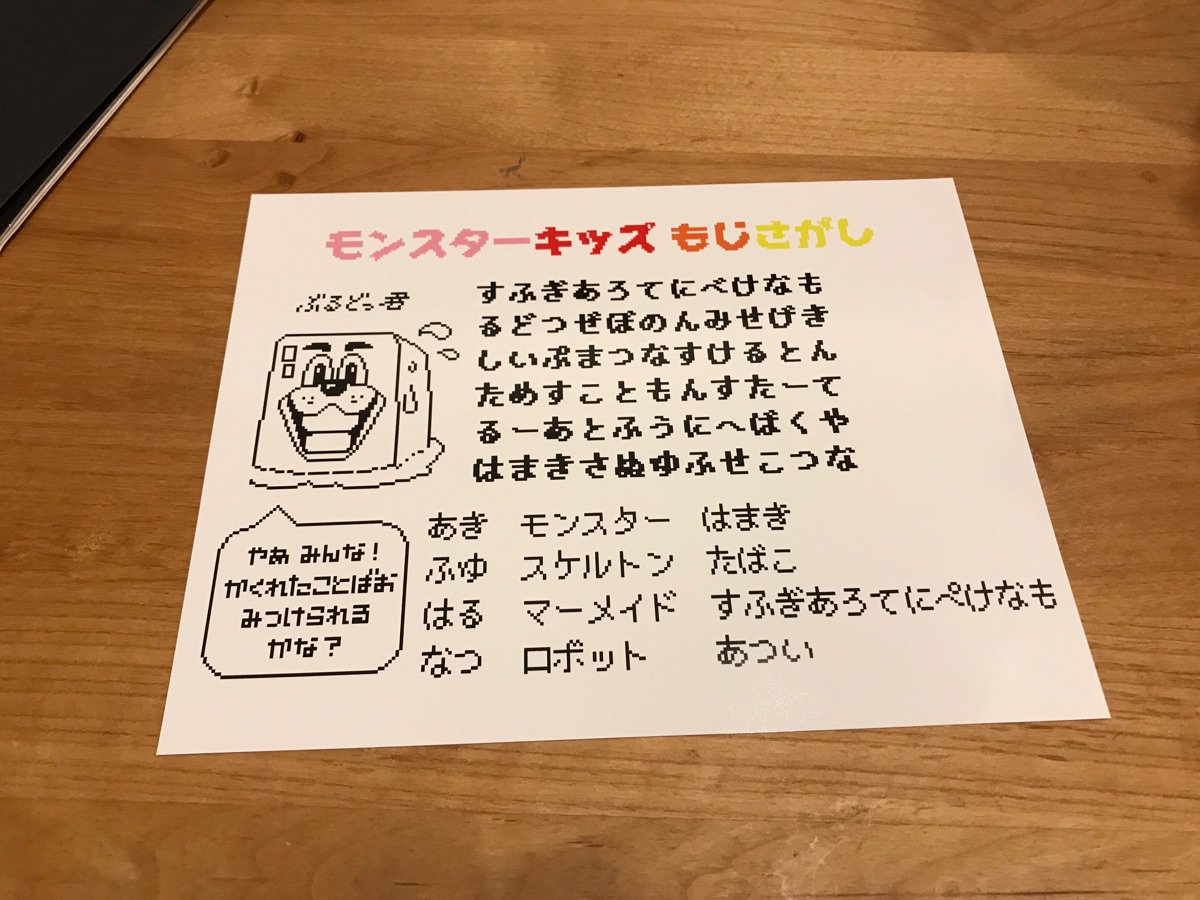 モンスターキッズ もじさがし
ぶるどっ君
すふぎあろてにべけなも
るどつぜぼのんみせげき
しいぷまつなすけるとん
ためすこともんすたーて
るーあとふうにへばくや
はまきさぬゆふせこつな
やぁ みんな!
かくれたことばお
みつけられる
かな?
あき モンスター はまき
ふゆ スケルトン たばこ
はる マーメイド すふぎあろてにペけなも
なつ ロボット あつい